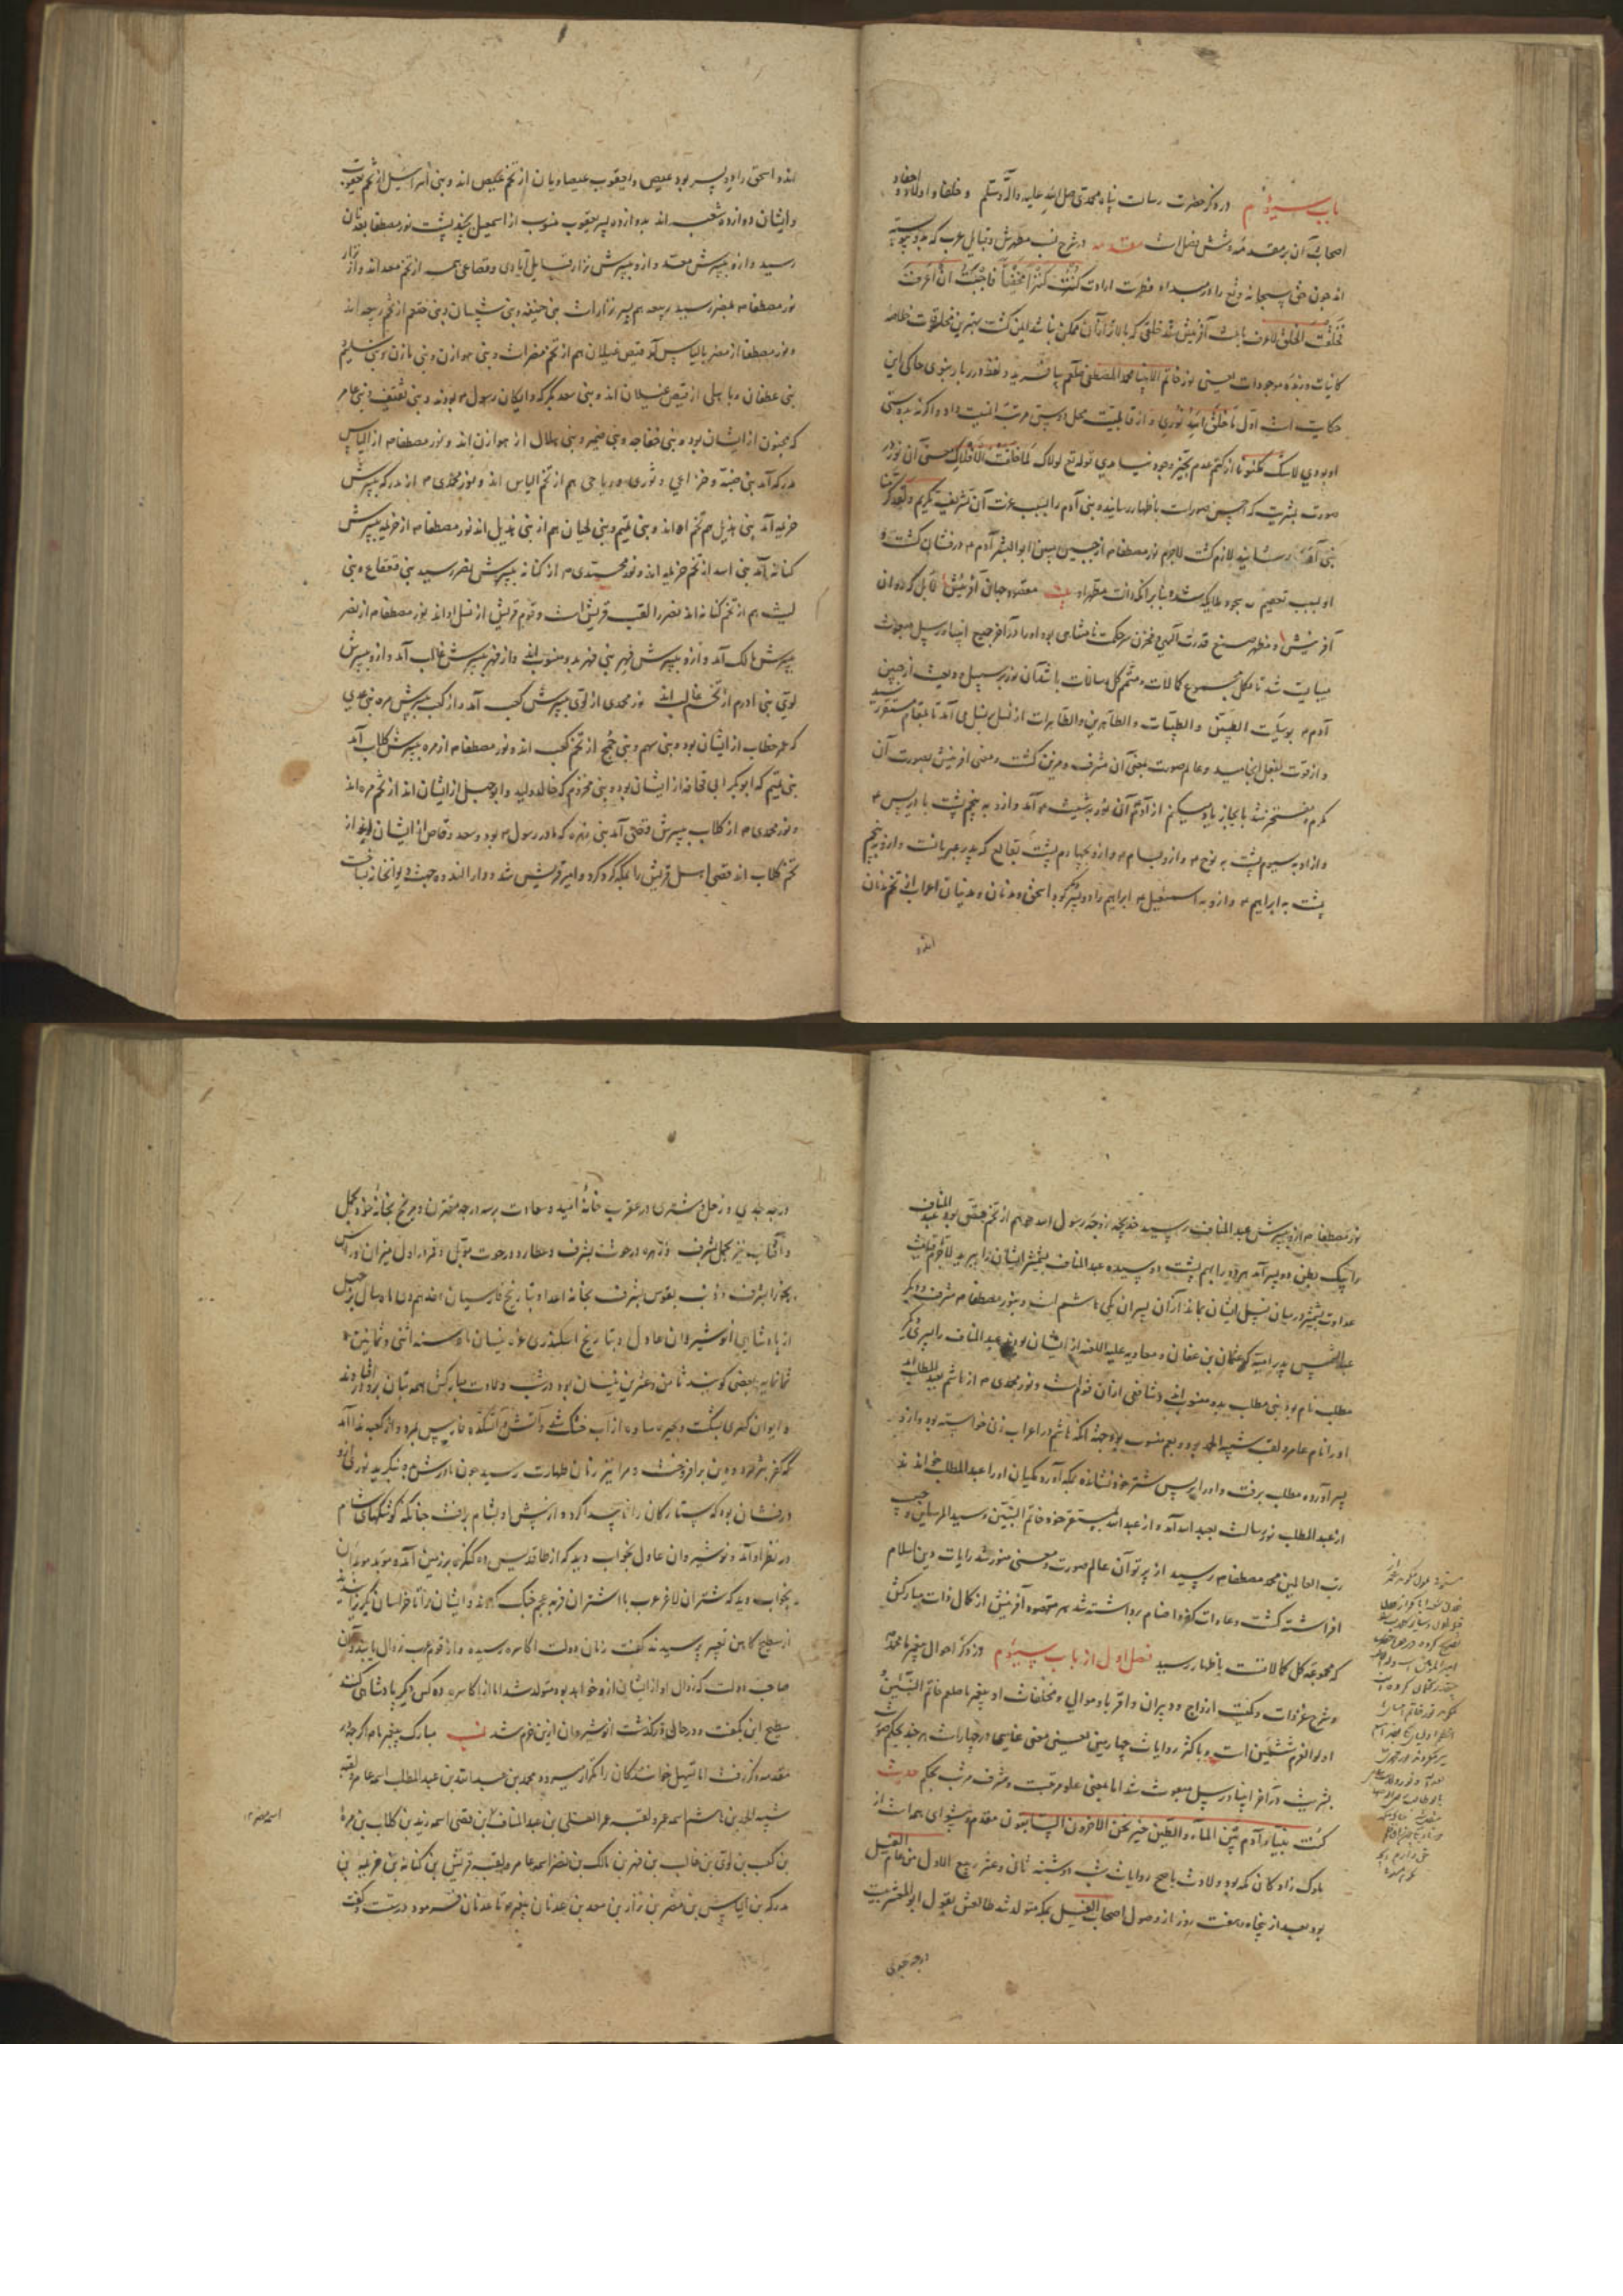 باب سیوم در ذکر حضرت رسالت پناه محمدی صلی الله علیه وآله وسلم و خلفا و اولاد و احفاد و
اصحاب آن بر مقدمه و شش فصل است مقدمه در شرح نسب مطهرش و قبایل عرب که بدو پیوسته
اند چون حق سبحانه وتع را در مبداء فطرت ارادت کنت کنزا مخفیا فاحببت ان اعرف
فخلقت الخلق لاعرف باعث آفرینش شد خلقی که بالاتر از آن ممکن نباشد این گشت بهترین مخلوقات خلاصه
کاینات و زبده موجودات یعنی نور خاتم الانبیا محمد المصطفی صلعم بیافرید و لفظ درر بار نبوی حاکی این
حکایت است اول ما خلق الله نوری و از قابلیت محل اوستی مرتبه انیت داد و اگر نه بدوستی
او بودی لاشک مکنونات از کتم عدم بحیز وجود نیامدی قوله تع لولاک لما خلقت الافلاک معنی آن نور در
صورت بشریت که احسن صورات باظهار رسانیده بنی آدم را بسبب عزت آن تشریف تکریم ولقد کرمنا
بنی آدم رسانید لازم گشت لاجرم نور مصطفی م از جبین مبین ابوالبشر آدم م درفشان گشت و
او بسبب تعظیم مسجود ملایکه شد و بنابر آنکه ذات مطهر او مقصود جهان آفرینش قابل کردن
آفرینش و مظهر صنع قدرت الهی و مخزن سر حکمت نامتناهی بود او را در آخر جمیع انبیا و رسل مبعوث
میبایست شد تا مکمل مجموع کمالات و متمم کل رسالات باشد آن نور بر سبیل ودیعت از جبین
آدم م بوسیلت الطیبین و الطیبات و الطاهرین والطاهرات از نسل بنسل می آمد تا بمقام مستقر رسید
و از قوت بفعل انجامید و عالم صورت بمعنی آن مشرف و مزین گشت و معنی آفرینش بصورت آن
مکرم و مفتخر شد بایجاز یاد میکنم از آدم آن نور به شیث م آمد و ازو به پنجم پشت با ادریس م
و از او به سیوم پشت به نوح م و ازو بسام م و ازو بچهارم پشت بفالغ که پدر عبریانست و ازو به پنجم
پشت به ابراهیم م و ازو به اسمعیل م ابراهیم را دو پسر بود اسحق و مدان و مدنیان اعراب از تخم مدنان
اندو
اند و اسحق را دو پسر بود عیص و یعقوب عیصاویان از تخم عیص اند و بنی اسرائیل از تخم یعقوب
و ایشان دوازده شعب اند بدوازده پسر یعقوب منسوب از اسمعیل بچند پشت نور مصطفا بعدنان
رسید و ازو بپسرش معد و ازو بپسرش نزار قبایل ایادی و قضاعی همه از تخم معد اند و از نزار
نور مصطفا م بمضر رسید ربیعه هم پسر نزار است بنی حنیفه و بنی شیبان و بنی خثعم از تخم ربیعه اند
و نور مصطفا از مضر بالیاس آمد قیس غیلان هم از تخم مضر است و بنی هوازن و بنی مازن و بنی سلیم
بنی غطفان و باهلی از قیص غیلان اند و بنی سعد بکر که دایگان رسول م بودند و بنی ثقیف و بنی عامر
که مجنون از ایشان بود و بنی خفاجه و بنی ضمیر و بنی هلال از هوازن اند و نور مصطفا م از الیاس
بدرکه آمد بنی ضبه و خزاعی و ثوری و رباحی هم از تخم الیاس اند و نور محمدی م از مدرکه بپسرش
خزیمه آمد بنی هذیل هم تخم او اند و بنی تمیم و بنی لحیان هم از بنی هذیل اند نور مصطفا م از خزیمه بپسرش
کنانه آمد بنی اسد از تخم خزیمه اند و نور محمدی م از کنانه بپسرش نضر رسید بنی قعقاع و بنی
لیث هم از تخم کنانه اند نضر را لقب قریش است و قوم قریش از نسل او اند نور مصطفا م از نضر
بپسرش مالک آمد و ازو بپسرش فهر بنی فهر بدو منسوب اند و از فهر بپسرش غالب آمد و ازو بپسرش
لوی بنی ادرم از تخم غالب اند نور محمدی از لوی بپسرش کعب آمد و از کعب بپسرش مره بنی عدی
که عمر خطاب از ایشان بود و بنی سهم و بنی جمح از تخم کعب اند و نور مصطفا م از مره بپسرش کلاب آمد
بنی تیم که ابوبکر ابی قحافه از ایشان بود و بنی مخزوم که خالد ولید و ابوجهل از ایشان اند از تخم مره اند
و نور محمدی م از کلاب بپسرش قصی آمد بنی زهره که مادر رسول م بود و سعد وقاص از ایشان اند از
تخم کلاب اند قصی اصل قریش را بمکه گرد کرد و امیر قریش شد و دار الندوه جهت دیوانخانه بساخت
نور مصطفا م ازو بپسرش عبد المناف رسید خدیجه زوجه رسول الله هم از تخم قصی بود عبد المناف
را بیک بطن دو پسر آمد هر دو را بهم پشت دوسیده عبد المناف بشمشیر ایشان را ببرید لاجرم قیامت
عداوت شمشیر در میان نسل ایشان بماند از آن پسران یکی هاشم است و بنور مصطفا م مشرف و دیگر
عبد الشمس پدر امیه که عثمان بن عفان و معاویه علیه اللعنه از ایشان بودند عبد المناف را پسری دیگر
مطلب نام بود بنی مطلب بدو منسوب اند و شافعی از آن قوم است و نور محمدی م از هاشم بعبد المطلب آمد
او را نام عامر و لقب شیبه الحمد بود و بعم منسوب بود جهت آنکه هاشم در اعراب زنی خواسته بود و ازو
پسر آورده مطلب برفت و او را بر پس شتر خود نشانده بمکه آورد مکیان او را عبد المطلب خواندند
از عبد المطلب نور رسالت بعبد الله آمد و از عبد الله بمستقر خود خاتم النبیین و سید المرسلین حبیب
رب العالمین محمد مصطفا م رسید از پرتو آن عالم صورت و معنی منور شد رایات دین اسلام
افراشته گشت و عادات کفر و اصنام برداشته شد سر مقصود آفرینش از کمال ذات مبارکش
که مجموعه کل کمالاتست باظهار رسید فصل اول از باب سیوم در ذکر احوال پیغمبر ما محمد م
و شرح غزوات و کمیت ازواج و دبیران و اقربا و موالی و مخلفات او پیغمبر ما صلعم خاتم النبیین و
اولو العزم ششمین است و باکثر روایات چهارمین یعنی معنی خامس در چهار است هر چند بحکم صورت
بشریت در آخر انبیا و رسل مبعوث شد اما بمعنی علو مرتبت و شرف مرتبه بحکم حدیث
کنت نبیا و آدم بین الماء والطین خبر نحن الآخرون السابقون مقدم و پیشوای همه است از
ملوک زادگان مکه بود ولادتش باصح روایات شب دوشنبه ثانی و عشر ربیع الاول من عام الفیل
بود بعد از پنجاه و هفت روز از وصول اصحاب الفیل بمکه متولد شد طالعش بقول ابو المعشر بیست
درجه جدی
درجه جدی و زحل و مشتری در عقرب خانه امید و سعادت بر سه درجه مقترن و مریخ بخانه خود بحمل
و آفتاب نیز بحمل بشرف و زهره در حوت بشرف و عطارد در حوت مقبل و قمر از اول میزان و راس
بجوزا بشرف و ذنب بقوس بشرف بخانه اعدا و بتاریخ فارسیان هفدهم دی ماه سال چهل
از پادشاهی انوشیروان عادل و بتاریخ اسکندری غره نیسان ماه سنه اثنی و ثمانین و
ثمانمایه بعضی گویند ثامن و عشرین نیسان بود در شب ولادت مبارکش همه بتان بروی افتادند
و ایوان کسری بشکست و بحیره ساوه از آب خشک شد و آتش آتشکده فارس بمرد و از کعبه ندا آمد
که کفر بپژمرد و دین برافروخت و مرا نیز زمان طهارت رسید چون مادرش م بنگرید نوری ازو
درفشان بود که ستارگان را ناپیدا کرد و از پیش او بشام برفت چنانکه کوشکهای شام
در نظر او آمد و نوشیروان عادل بخواب دید که از طاقدیس ده کنگره بر زمین آمد و موبد موبدان
بخواب دید که شتران لاغر عرب با اشتران فربه عجم جنگ کردند و ایشان را تا خراسان بگریزانیدند
از سطیح کاهن تعبیر پرسیدند گفت زمان دولت اکاسره رسیده و از قوم عرب زوال یابند و آن
صاحب دولت که زوال او از ایشان ازو خواهد بود متولد شد اما از اکاسره ده کس دیگر پادشاهی کنند
سطیح این بگفت و در حال درگذشت انوشیروان ازین خرم شد نسب مبارک پیغمبر ما م اگر چه در
مقدمه ذکر رفت اما تسهیل خوانندگان را تکرار میرود محمد بن عبد الله بن عبد المطلب اسمه عامر و لقبه
شیبه الحمد بن هاشم اسمه عمر و لقبه عمر العلی بن عبد المناف بن قصی اسمه زید بن کلاب بن مره
بن کعب بن لوی بن غالب بن فهر بن مالک بن نضر اسمه عامر و لقبه قریش بن کنانه بن خزیمه بن
مدرکه بن الیاس بن مضر بن نزار بن معد بن عدنان پیغمبر م تا عدنان فرمود درست و گفت